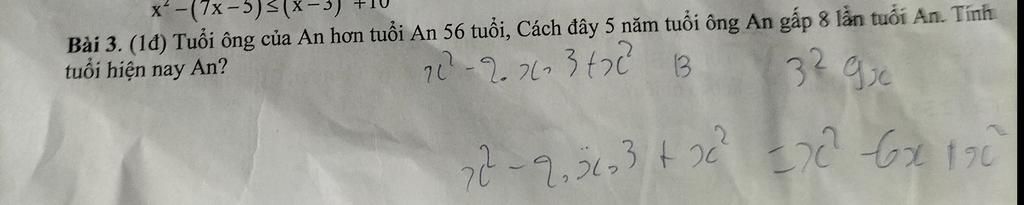 x² −(7x−5)≤(x−3) +10
Bài 3. (1đ) Tuổi ông của An hơn tuổi An 56 tuổi, Cách đây 5 năm tuổi ông An gấp 8 lần tuổi An. Tính
tuổi hiện nay An?
x² - 2.x.3+x² 13 3² 9x
x² - 2.x.3 + x² = x² - 6x + x²